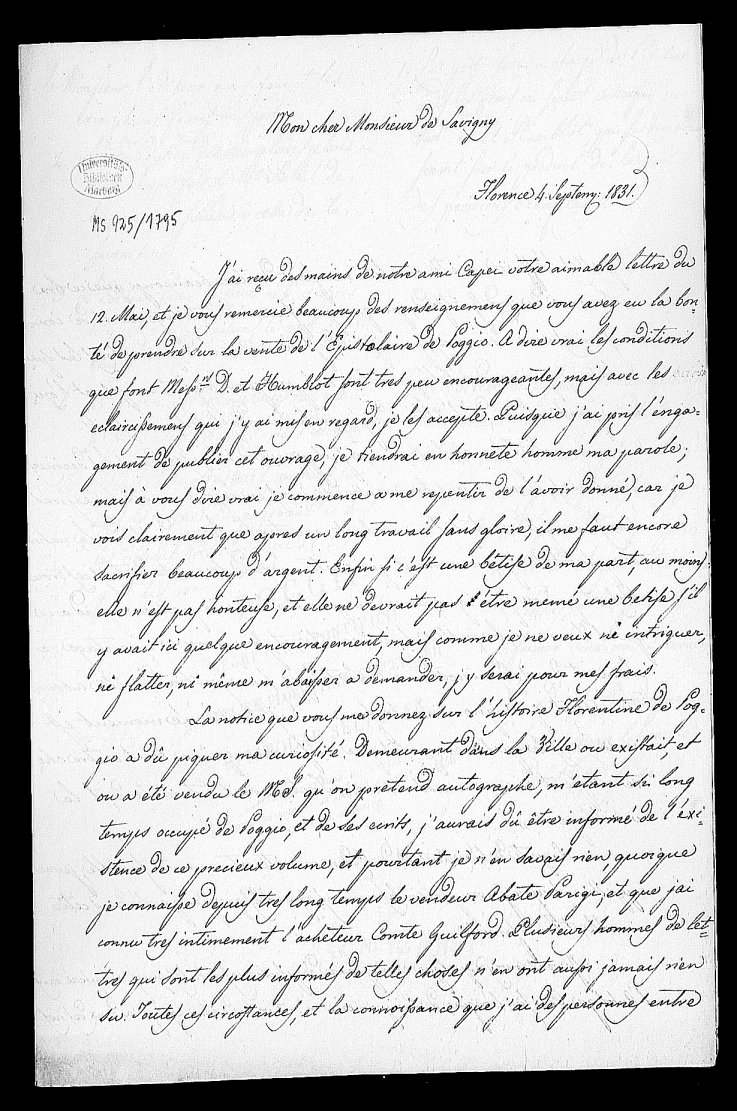 Mon cher Monsieur de Savigny
Universitäts-
Bibliothek
Marburg
Florence 4. Septem: 1831.
Ms 925/1795
J'ai reçu des mains de notre ami Capei votre aimable lettre du
12. Mai, et je vous remercie beaucoup des renseignemens que vous avez eu la bon=
té de prendre sur la vente de l'Epistolaire de Poggio. A dire vrai les conditions
que font Mess.rs D. et Humblot sont tres peu encourageantes, mais avec les
eclaircissemens qui j'y ai mis en regard, je les accepte. Puisque j'ai pris l'enga=
gement de publier cet ouvrage, je tiendrai en honnete homme ma parole;
mais à vous dire vrai je commence a me repentir de l'avoir donné, car je
vois clairement que apres un long travail sans gloire, il me faut encore
sacrifier beaucoup d'argent. Enfin si c'est une bétise de ma part, au moins
elle n'est pas honteuse, et elle ne devrait pas être memé une betise s'il
y avait ici quelque encouragement, mais comme je ne veux ni intriguer,
ni flatter, ni même m'abaisser a demander, j'y serai pour mes frais.
La notice que vous me donnez sur l'histoire Florentine de Pog-
gio a dû piquer ma curiosité. Demeurant dans la Ville ou existait, et
ou a été vendu le MS. qu'on pretend autographe, m'etant si long
temps occupé de Poggio, et de ses ecrits, j'aurais dû être informé de l'éxi=
stence de ce precieux volume, et pourtant je n'en savais rien, quoique
je connaisse depuis tres long temps le vendeur Abate Parigi, et que jai
connu tres intimement l'achéteur Comte Guilford. Plusieurs hommes de let=
tres qui sont les plus informés de telles choses n'en ont aussi jamais rien
su. Toutes ces circostances, et la connoissance que j'ai des personnes entre